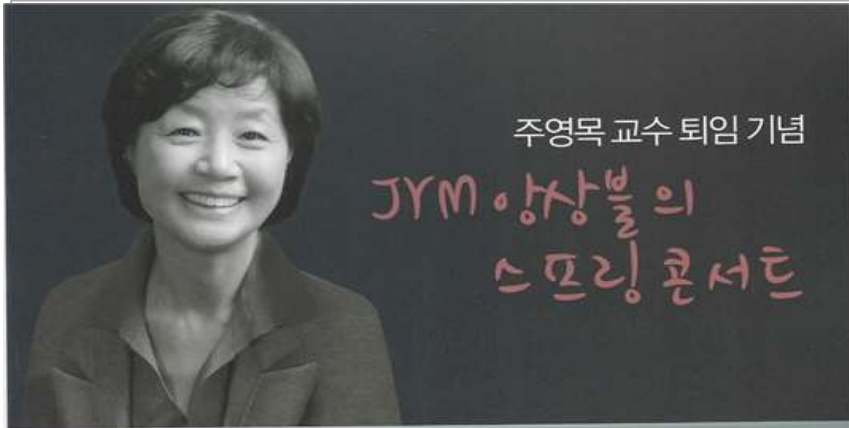 주영목 교수 퇴임 기념
JYM 앙상블의
스프링 콘서트